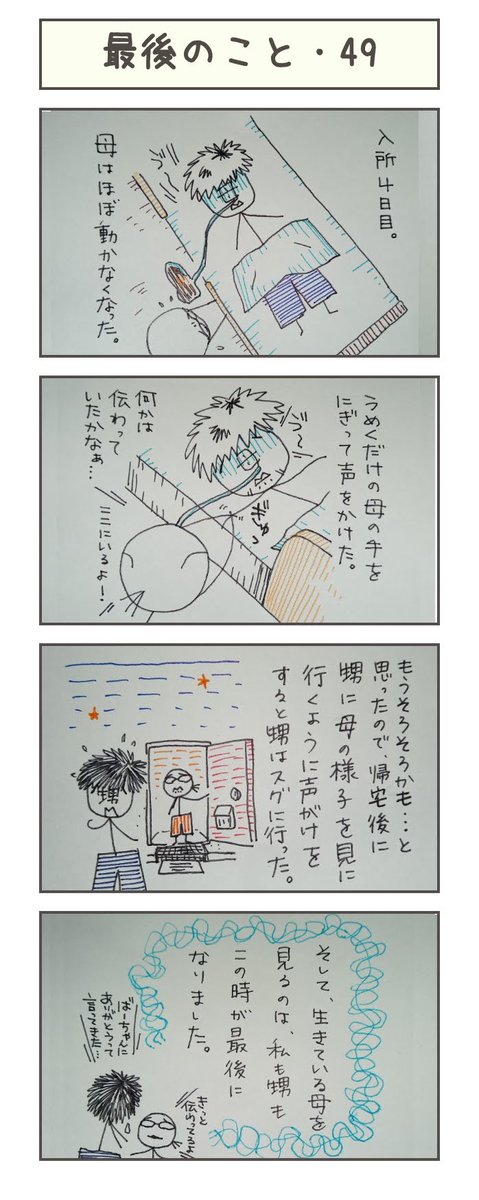 最後のこと・49
入所4日目。
母はほぼ動かなくなった。
うめくだけの母の手を
にぎって声をかけた。
う〜
ぎゅっ
何かは
伝わって
いたかなぁ…
ここにいるよ!
もうそろそろかも…と
思ったので、帰宅後に
甥に母の様子を見に
行くように声がけを
すると甥はスグに行った。
甥
そして、生きている母を
見るのは、私も甥も
この時が最後に
なりました。
ばーちゃんに
ありがとうって
言ってきた…
きっと
伝わってるよ